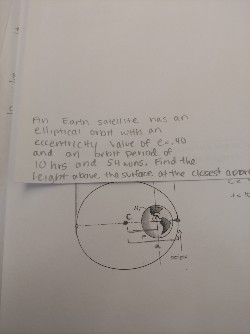 An Earth satellite has an
elliptical orbit with an
eccentricity value of e=.40
and an orbit period of
10 hrs and 54 mins. Find the
height above the surface at the closest
C